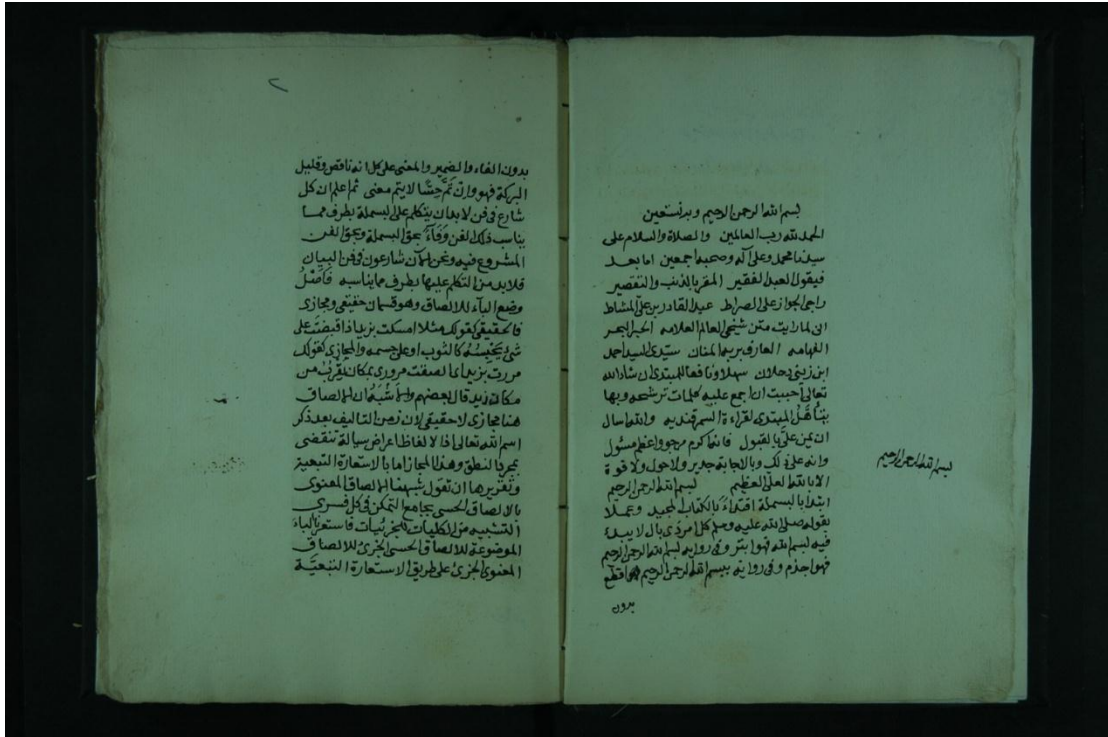 بسم الله الرحمن الرحيم وبه نستعين
الحمد لله رب العالمين والصلاة والسلام على
سيدنا محمد وعلى آله وصحبه اجمعين اما بعد
فيقول العبد الفقير المقر بالذنب والتقصير
راجى الجواز على الصراط عبد القادر بن على المشاط
انى لما رايت متن شيخى العالم العلامه الحبر البحر
الفهامه العارف بربه المنان سيدى السيد احمد
ابن زينى دحلان سهلا ونافعا للمبتدى ان شاء الله
تعالى احببت ان اجمع عليه كلمات توشحه وبها
يتأهل المبتدى لقراءة السمرقنديه والله اسال
ان يمن على بالقبول فانه اكرم مرجو واعظم مسئول
وانه على ذلك وبالاجابة جدير ولا حول ولا قوة
الا بالله العلى العظيم بسم الله الرحمن الرحيم
ابتدا بالبسملة اقتداءً بالكتاب المجيد وعملا
بقوله صلى الله عليه وسلم كل امر ذى بال لا يبدء
فيه لبسم الله فهوا بتر وفى روايه لبسم الله الرحمن الرحيم
فهوا جذم وفى روايه ببسم الله الرحمن الرحيم هوا قطع
بدون
بسم الله الرحمن الرحيم
٢
بدون الفاء والضمير والمعنى على كل انه ناقص وقليل
البركة فهو وان تَمَّ حِسًّا لا يتم معنى ثم اعلم ان كل
شارع فى فن لابد ان يتكلم على البسملة بطرف مما
يناسب ذلك الفن وَفَاءً بحق البسملة وبحق الفن
المشروع فيه ونحن الآن شارعون فى فن البيان
فلا بد من التكلم عليها بطرف مما يناسبه فاصْلُ
وضع الباء للالصاق وهو قسمان حقيقى ومجازى
فالحقيقى كقولك مثلا امسكت بزيد اذا قبضتَ على
شئ يَحْبِسُهُ كالثوب او على جسمه والمجازى كقولك
مررت بزيد اى الصقت مرورى بمكان يقرُبُ من
مكان زيد قال بعضهم والاَشْبَهُ ان الالصاق
هنا مجازى لا حقيقى لان زمن التاليف بعد ذكر
اسم الله تعالى اذ الالفاظ اعراض سيالة تنقضى
بمجرد النطق وهذا المجاز اما بالاستعارة التبعية
وتقريرها ان تقول شبهنا الالصاق المعنوى
بالالصاق الحسى بجامع التمكن فى كل فسرى
التشبيه من الكليات للجزئيات فاستعرنا الباء
الموضوعة للالصاق الحسى الجزئ للالصاق
المعنوى الجزئ على طريق الاستعارة التبعيّة